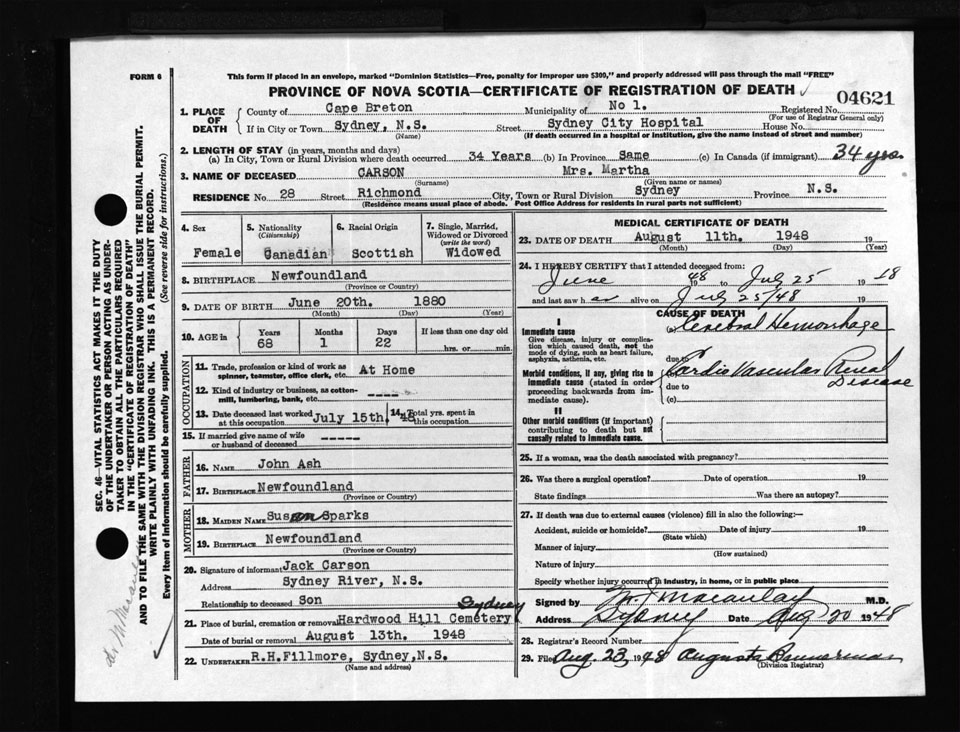 FORM 6
This form if placed in an envelope, marked "Dominion Statistics—Free, penalty for improper use $300," and properly addressed will pass through the mail "FREE"
PROVINCE OF NOVA SCOTIA—CERTIFICATE OF REGISTRATION OF DEATH
04621
1. PLACE OF DEATH
County of Cape Breton Municipality of No 1. Registered No.
(For use of Registrar General only)
If in City or Town Sydney, N.S. Street Sydney City Hospital House No.
(Name) (If death occurred in a hospital or institution, give the name instead of street and number)
2. LENGTH OF STAY (in years, months and days)
(a) In City, Town or Rural Division where death occurred 34 Years (b) In Province Same (c) In Canada (if immigrant) 34 yrs
3. NAME OF DECEASED CARSON Mrs. Martha
(Surname) (Given name or names)
RESIDENCE No 28 Street Richmond City, Town or Rural Division Sydney Province N.S.
(Residence means usual place of abode. Post Office Address for residents in rural parts not sufficient)
4. Sex
Female
5. Nationality
(Citizenship)
Canadian
6. Racial Origin
Scottish
7. Single, Married, Widowed or Divorced
(write the word)
Widowed
8. BIRTHPLACE Newfoundland
(Province or Country)
9. DATE OF BIRTH June 20th. 1880
(Month) (Day) (Year)
10. AGE in
Years Months Days If less than one day old
68 1 22 hrs. or min.
OCCUPATION
11. Trade, profession or kind of work as spinner, teamster, office clerk, etc. At Home
12. Kind of industry or business, as cotton-mill, lumbering, bank, etc. ----
13. Date deceased last worked at this occupation July 15th. 48
14. Total yrs. spent in this occupation
15. If married give name of wife or husband of deceased -----
FATHER
16. NAME John Ash
17. BIRTHPLACE Newfoundland
(Province or Country)
MOTHER
18. MAIDEN NAME Susan Sparks
19. BIRTHPLACE Newfoundland
(Province or Country)
20. Signature of informant Jack Carson
Address Sydney River, N.S.
Relationship to deceased Son
Sydney
21. Place of burial, cremation or removal Hardwood Hill Cemetery
Date of burial or removal August 13th. 1948
22. UNDERTAKER R.H.Fillmore, Sydney,N.S.
(Name and address)
MEDICAL CERTIFICATE OF DEATH
23. DATE OF DEATH August 11th. 1948 19
(Month) (Day) (Year)
24. I HEREBY CERTIFY that I attended deceased from:
June 1948 to July 25 19 48
and last saw her alive on July 25/48 19
CAUSE OF DEATH
I
Immediate cause
Give disease, injury or complication which caused death, not the mode of dying, such as heart failure, asphyxia, asthenia, etc.
(a) Cerebral Hemorrhage
due to
Morbid conditions, if any, giving rise to immediate cause (stated in order proceeding backwards from immediate cause).
Cardio Vascular Renal Disease
due to
(c)
II
Other morbid conditions (if important) contributing to death but not causally related to immediate cause.
25. If a woman, was the death associated with pregnancy?
26. Was there a surgical operation? Date of operation 19
State findings Was there an autopsy?
27. If death was due to external causes (violence) fill in also the following:—
Accident, suicide or homicide? Date of injury 19
(State which)
Manner of injury
(How sustained)
Nature of injury
Specify whether injury occurred in industry, in home, or in public place
Signed by M. J Macaulay M.D.
Address Sydney Date Aug 20 1948
28. Registrar's Record Number
29. Filed Aug. 23 1948 Augusta Bannerman
(Division Registrar)
SEC. 46—VITAL STATISTICS ACT MAKES IT THE DUTY
OF THE UNDERTAKER OR PERSON ACTING AS UNDER-
TAKER TO OBTAIN ALL THE PARTICULARS REQUIRED
IN THE "CERTIFICATE OF REGISTRATION OF DEATH"
AND TO FILE THE SAME WITH THE DIVISION REGISTRAR WHO SHALL ISSUE THE BURIAL PERMIT.
WRITE PLAINLY WITH UNFADING INK. THIS IS A PERMANENT RECORD.
Every item of information should be carefully supplied. (See reverse side for instructions.)